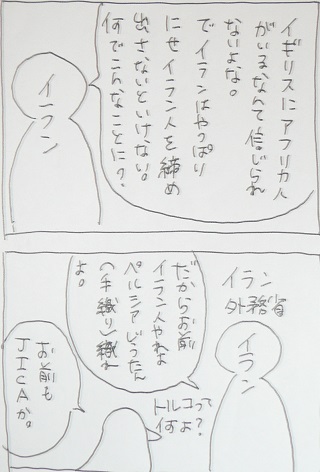 イギリスにアフリカ人
がいるなんて信じられ
ないよな。
でイランはやっぱり
にせイラン人を締め
出さないといけない。
何でこんなことに?
イラン
イラン
外務省
イラン
だからお前
イラン人やれよ
ペルシアじゅうたん
(手織り)織れ
よ。
トルコって
何よ?
お前も
JICAか。